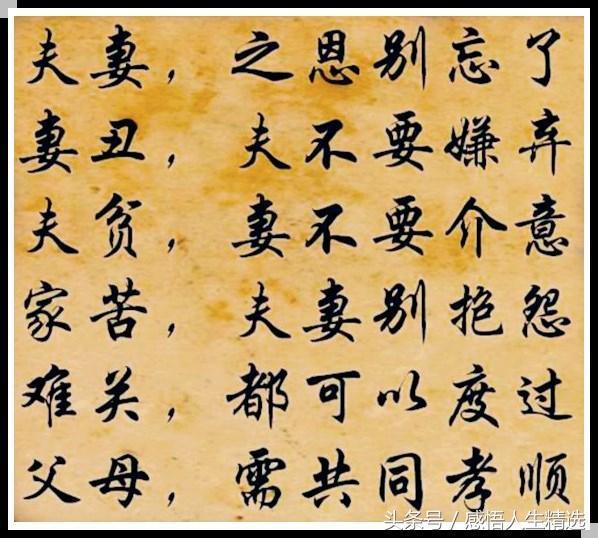 夫妻，之恩别忘了
妻丑，夫不要嫌弃
夫贫，妻不要介意
家苦，夫妻别抱怨
难关，都可以度过
父母，需共同孝顺
头条号 / 感悟人生精选